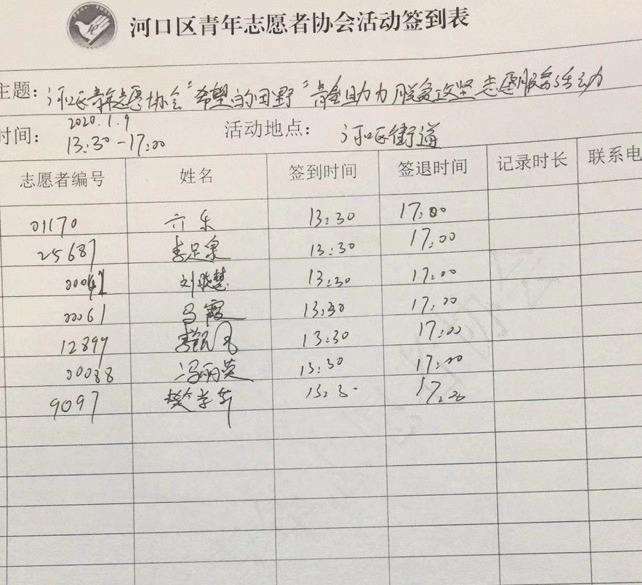 河口区青年志愿者协会活动签到表
主题：河口区青年志愿协会"希望的田野"青春助力脱贫攻坚志愿服务活动
时间：2020.1.9 13:30-17:00 活动地点：河口街道
志愿者编号 姓名 签到时间 签退时间 记录时长 联系电
01170 13:30 17:00
25687 李足泉 13:30 17:00
13:30 17:00
00061 马霞 13:30 17:00
12899 13:30 17:00
00088 冯丽英 13:30 17:00
9097 樊学军 13:3 17:00